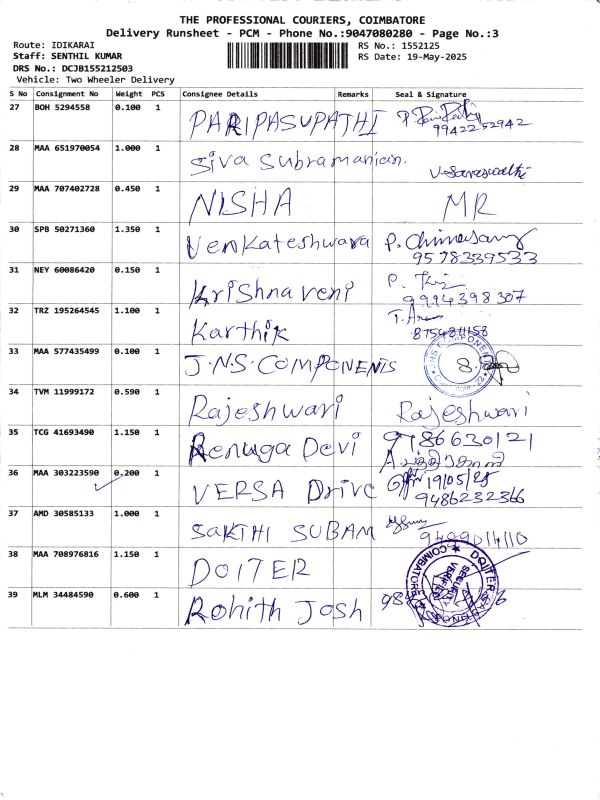 THE PROFESSIONAL COURIERS, COIMBATORE
Delivery Runsheet - PCM - Phone No.:9047080280 - Page No.:3
Route: IDIKARAI
RS No.: 1552125
Staff: SENTHIL KUMAR
RS Date: 19-May-2025
DRS No.: DCJB155212503
Vehicle: Two Wheeler Delivery
S No Consignment No Weight PCS Consignee Details Remarks Seal & Signature
27 BOH 5294558 0.100 1 PARIPASUPATHI
9942252942
28 MAA 651970054 1.000 1 Siva Subramanian.
V. Saraswathi
29 MAA 707402728 0.450 1 NISHA MR
30 SPB 50271360 1.350 1 Venkateshwara P. Chinnasamy
9578339533
31 NEY 60086420 0.150 1 Krishnaveni P.
9994398307
32 TRZ 195264545 1.100 1 Karthik T.
33 MAA 577435499 0.100 1 J.N.S. COMPONENTS
34 TVM 11999172 0.590 1 Rajeshwari Rajeshwari
35 TCG 41693490 1.150 1 Renuga Devi 9786630121
36 MAA 303223590 0.200 1 VERSA Drive 19/05/25
9486232366
37 AMD 30585133 1.000 1 SAKTHI SUBAM
38 MAA 708976816 1.150 1 DOITER
DOITER
COIMBATORE
39 MLM 34484590 0.600 1 Rohith Josh